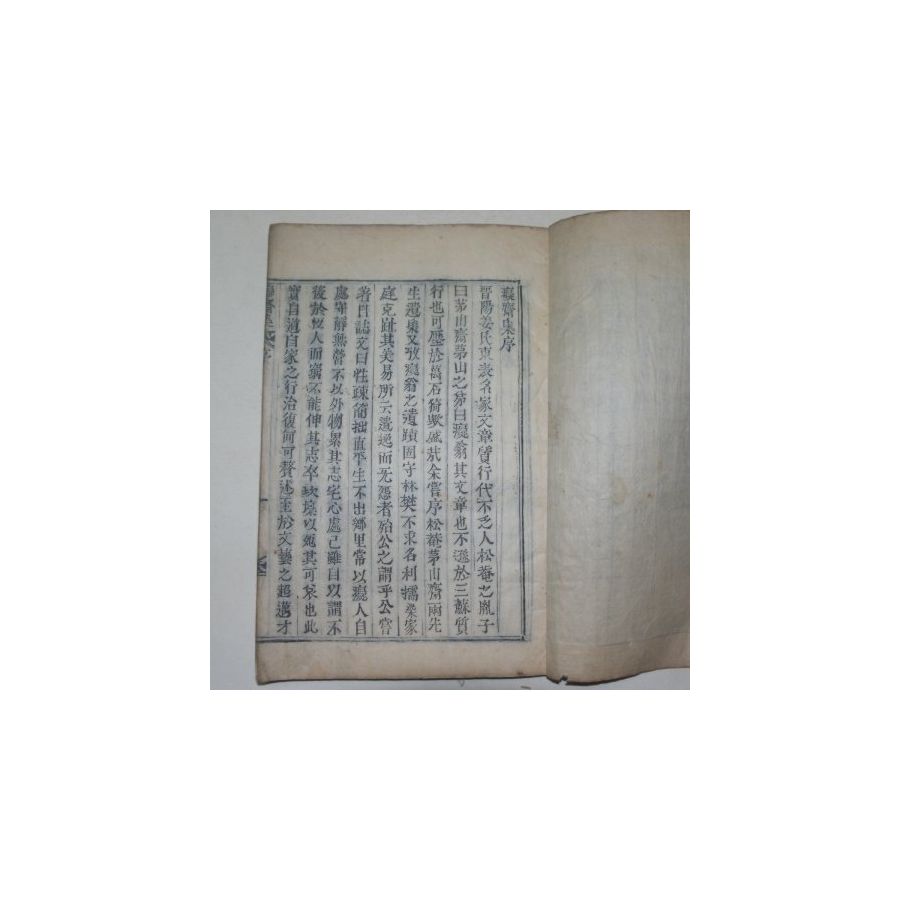 癡齋集序
晉陽姜氏東表名家文章質行代不乏人松菴之胤子
曰茅山齋茅山之弟曰癡翁其文章也不遜於三蘇質
行也可壓於萬石猗歟盛哉余嘗序松菴茅山齋兩先
生遺集又攷癡翁之遺蹟固守林樊不求名利擩染家
庭克趾其美易所云遺過而无怨者殆公之謂乎公嘗
著自誌文曰性疎簡拙直平生不出鄉里常以癡人自
處守靜無營不以外物累其志宅心處己雖自以謂不
後於恒人而窮不能伸其志卒坎壈以死其可哀也此
實自道自家之行治復何可贅述至於文藝之超邁才